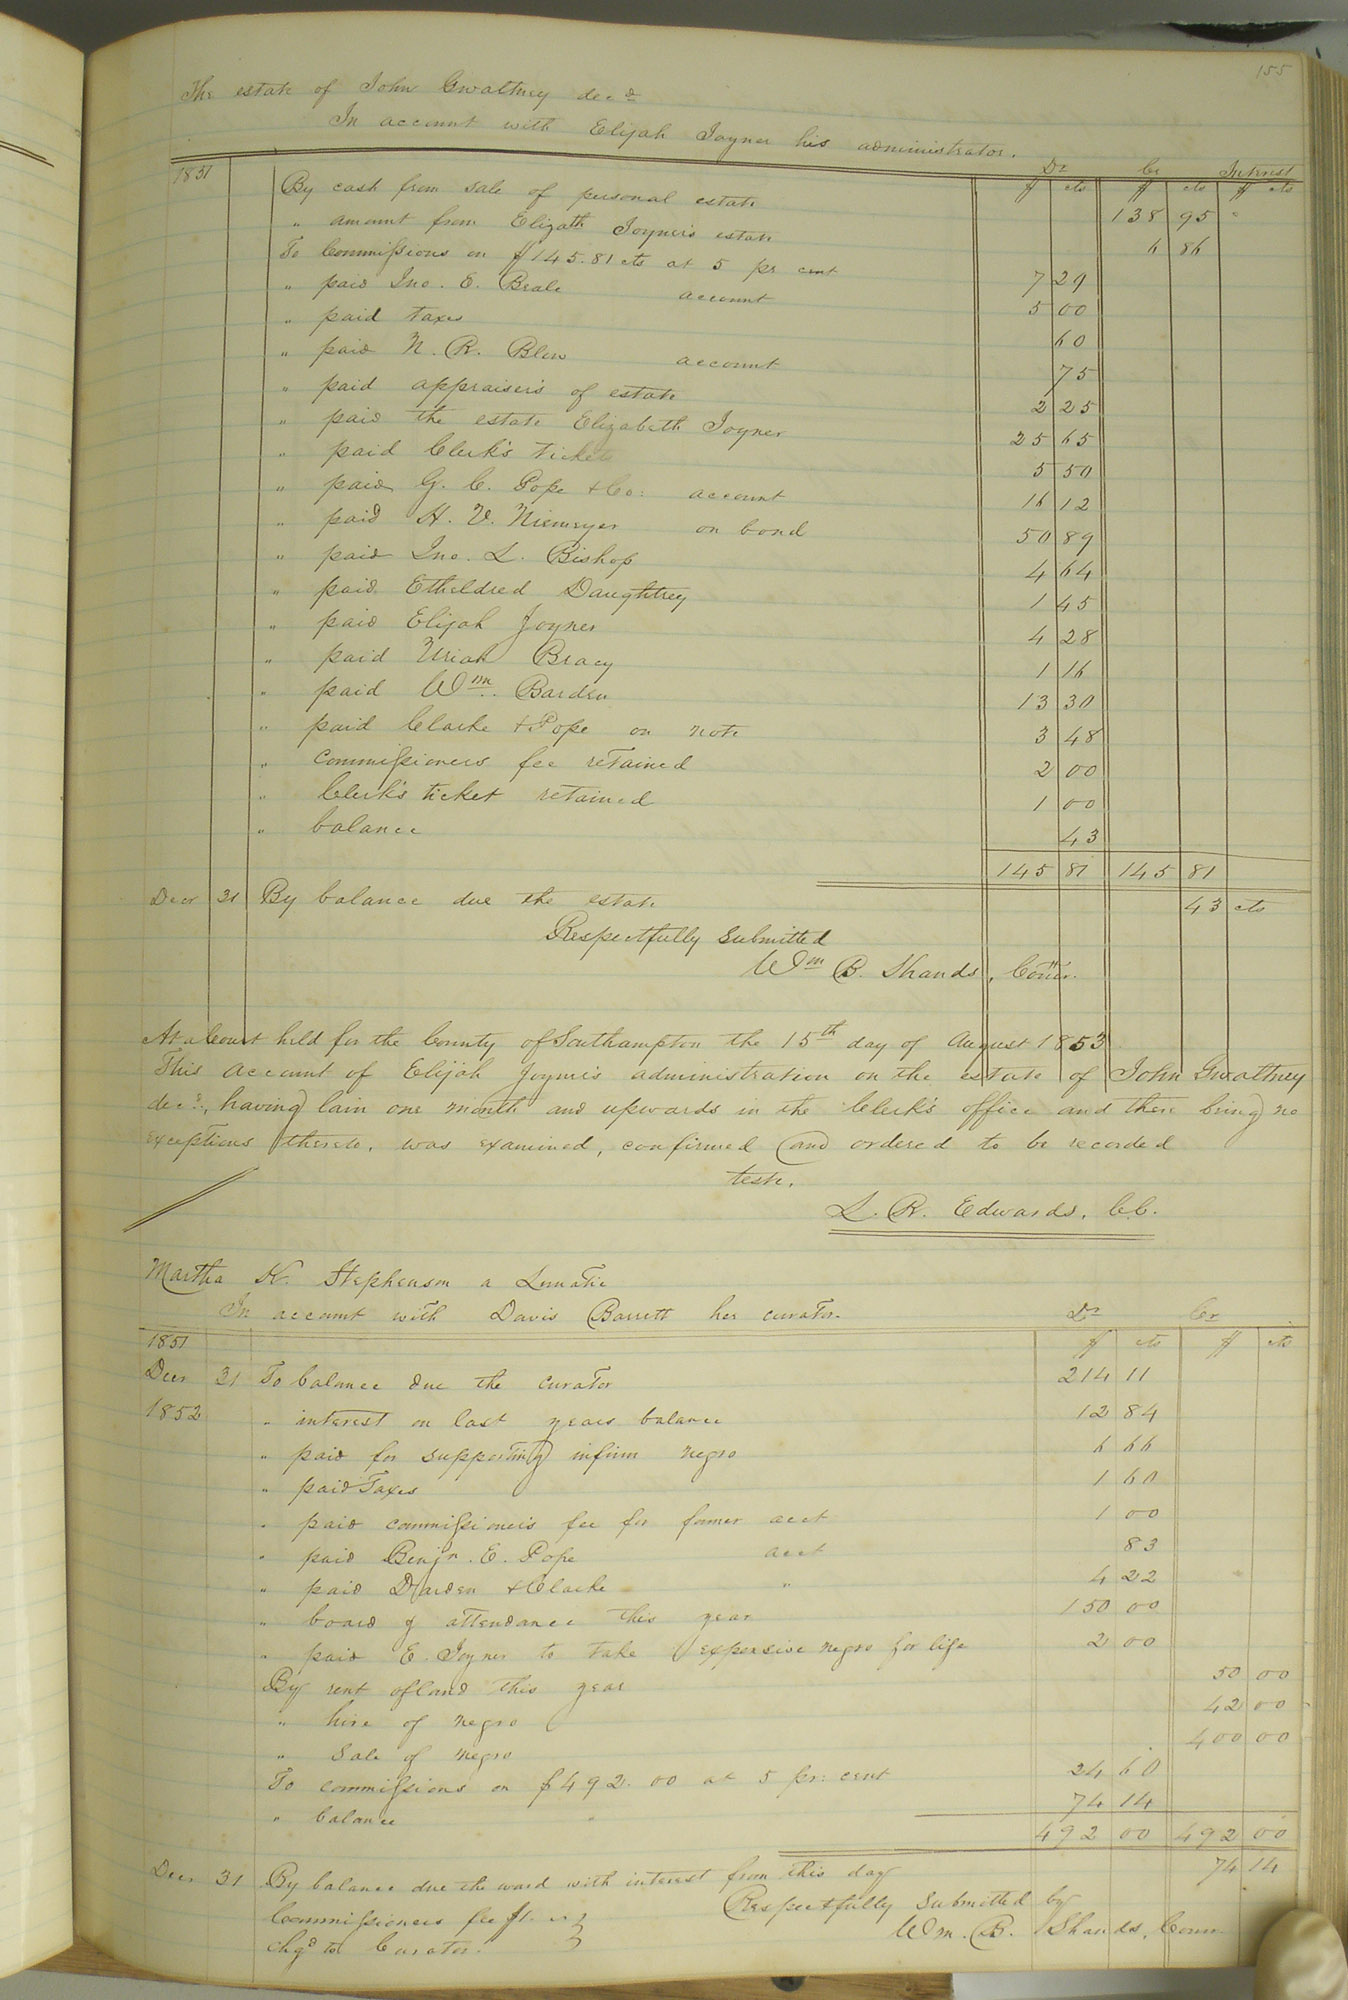 155
The estate of John Gwaltney decd
In account with Elijah Joyner his administrator.
Dr Cr Interest
1851 $ cts $ cts $ cts
By cash from sale of personal estate 138 95
" amount from Elizath Joyner's estate 6 86
To Commissions on $145.81 cts at 5 pr cent 7 29
" paid Jno. E. Beale account 5 00
" paid taxes 60
" paid N. R. Blow account 75
" paid appraisers of estate 2 25
" paid the estate Elizabeth Joyner 25 65
" paid Clerk's tickets 5 50
" paid G. C. Pope & Co: account 16 12
" paid H. V. Niemeyer on bond 50 89
" paid Jno. L. Bishop 4 64
" paid Etheldred Daughtrey 1 45
" paid Elijah Joyner 4 28
" paid Uriah Bracy 1 16
" paid Wm. Barden 13 30
" paid Clarke & Pope on note 3 48
" Commissioners fee retained 2 00
" Clerk's ticket retained 1 00
" balance 43
145 81 145 81
Decr 31 By balance due the estate 43 cts
Respectfully Submitted
Wm B. Shands, Comr.
At a Court held for the County of Southampton the 15th day of August 1853
This account of Elijah Joyner's administration on the estate of John Gwaltney
decd., having lain one month and upwards in the Clerk's office and there being no
exceptions thereto, was examined, confirmed and ordered to be recorded
teste.
L. R. Edwards, C.C.
Martha H. Stephenson a Lunatic
In account with Davis Barrett her curator. Dr Cr
1851 $ cts $ cts
Decr 31 To balance due the curator 214 11
1852 " interest on last years balance 12 84
" paid for supporting infirm negro 6 66
" paid Taxes 1 60
" paid commissioner's fee for former acct 1 00
" paid Benjn. E. Pope acct 83
" paid Darden & Clarke " 4 22
" board & attendance this year 150 00
" paid E. Joyner to take expensive negro for life 2 00
By rent of land this year 50 00
" hire of negro 42 00
" Sale of negro 400 00
To commissions on $492.00 at 5 pr: cent 24 60
" balance " 74 14
492 00 492 00
Decr 31 By balance due the ward with interest from this day 74 14
Commissioners fee $1. Respectfully Submitted by
chgd to Curator. Wm. B. Shands, Comr.